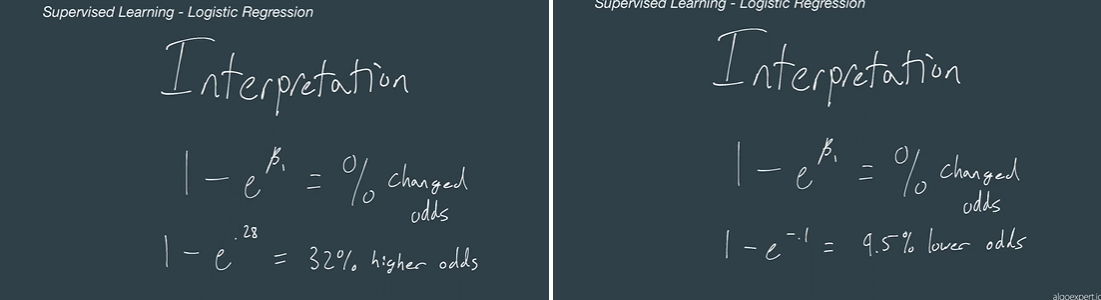 Supervised Learning - Logistic Regression
Interpretation
1 - e^β₁ = % changed
odds
1 - e^.28 = 32% higher odds
Supervised Learning - Logistic Regression
Interpretation
1 - e^β₁ = % changed
odds
1 - e^-.1 = 9.5% lower odds
algoexpert.io